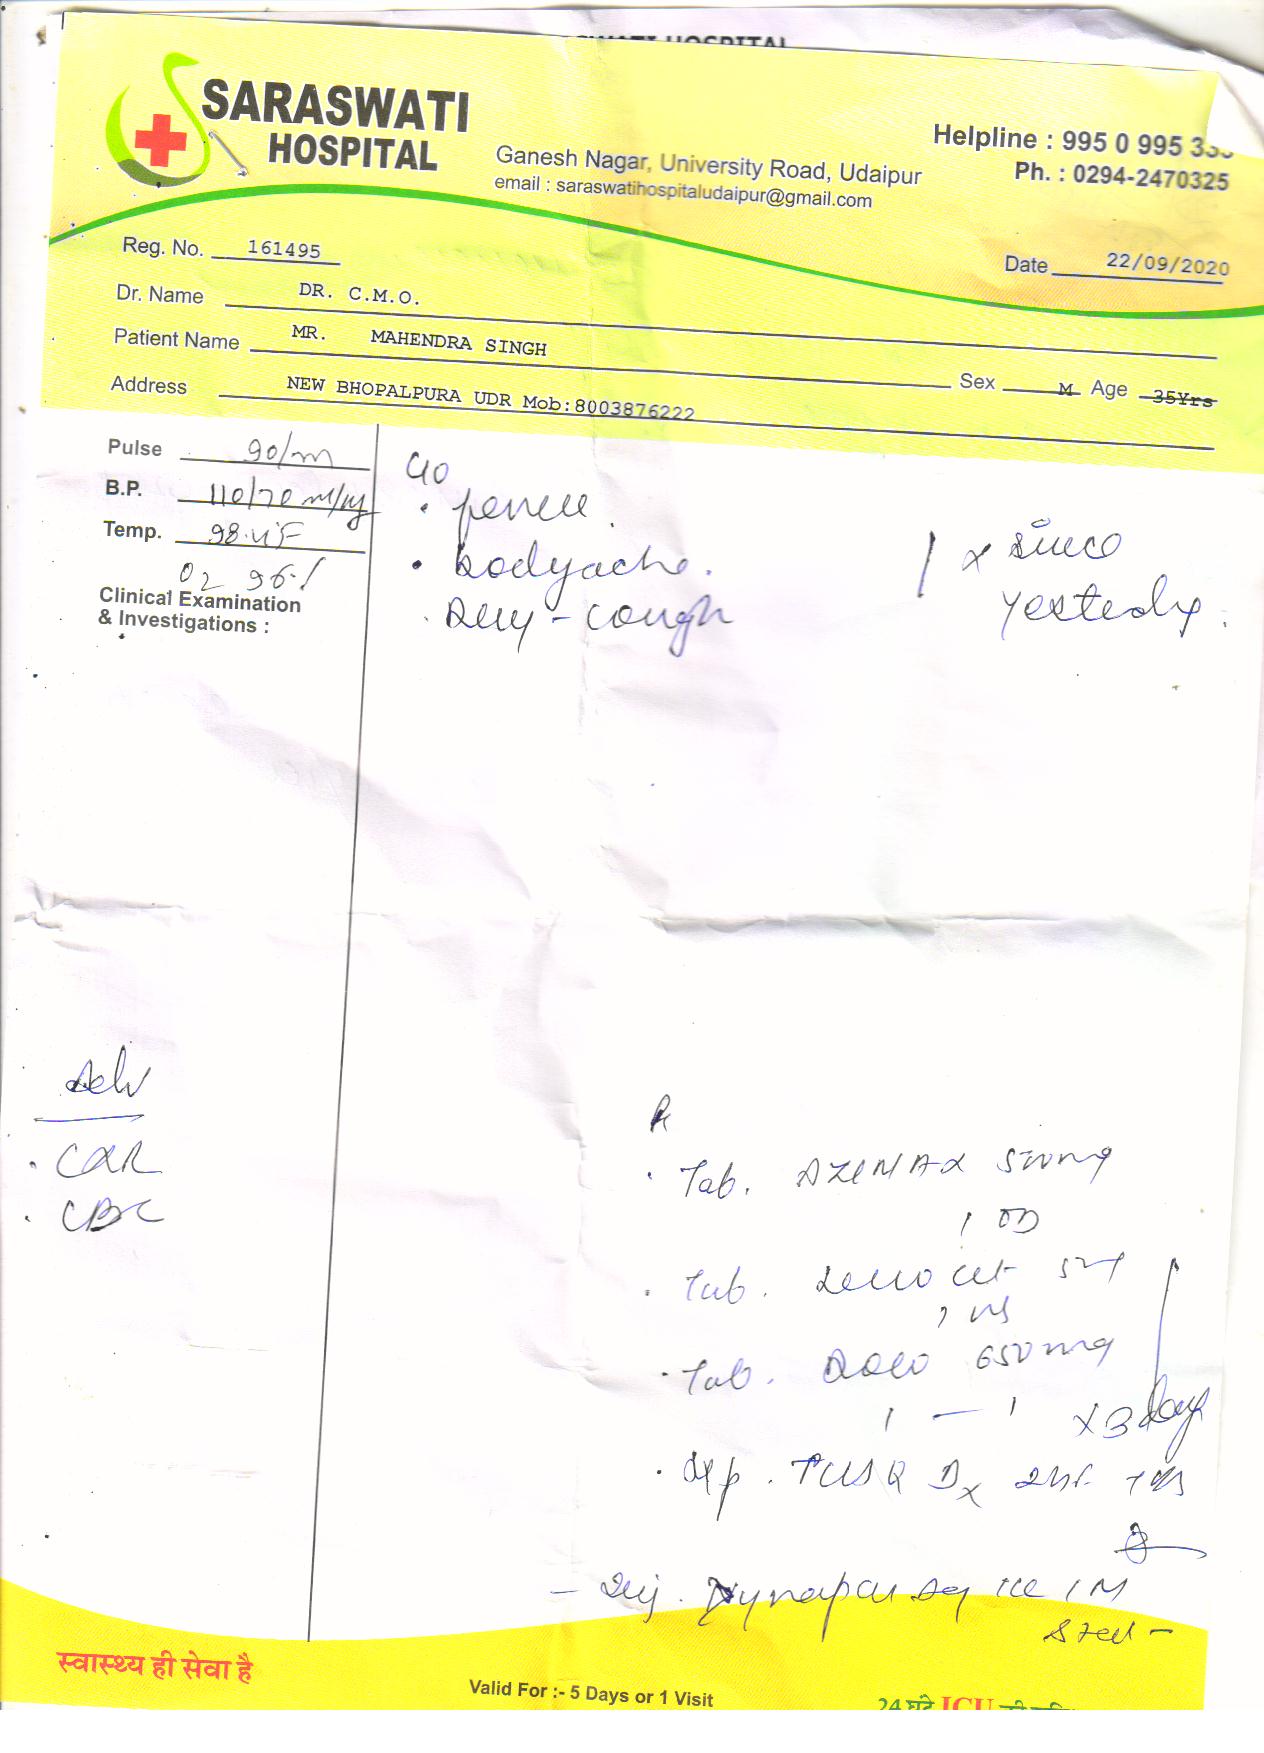 SARASWATI
HOSPITAL
Ganesh Nagar, University Road, Udaipur
email : saraswatihospitaludaipur@gmail.com
Helpline : 995 0 995 333
Ph. : 0294-2470325
Reg. No. 161495
Date 22/09/2020
Dr. Name DR. C.M.O.
Patient Name MR. MAHENDRA SINGH
Sex M Age 35Yrs
Address NEW BHOPALPURA UDR Mob:8003876222
Pulse 90/m
B.P. 110/70 m/hg
Temp. 98.4°F
O2 96%
Clinical Examination
& Investigations :
C/O
• fever.
• bodyache.
• Dry-cough
x since
yesterday.
Adv
• CXR
• CBC
R
• Tab. AZIMAX 500mg
1 OD
• Tab. Levocet 5mg
1 HS
• Tab. Dolo 650mg
1 — 1 x 3 days
• Syp. TUSQ Dx 2tsf TDS
- Inj. Dynapar Aq 1cc IM
Stat -
स्वास्थ्य ही सेवा है
Valid For :- 5 Days or 1 Visit
24 घंटे ICU